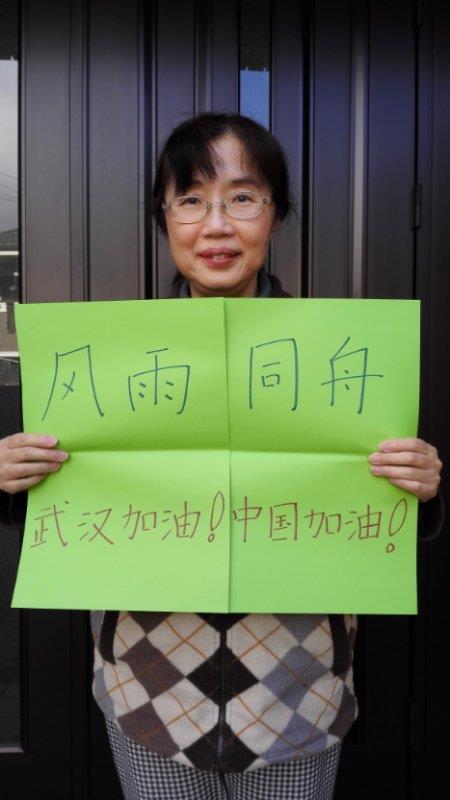 风雨同舟
武汉加油!中国加油!